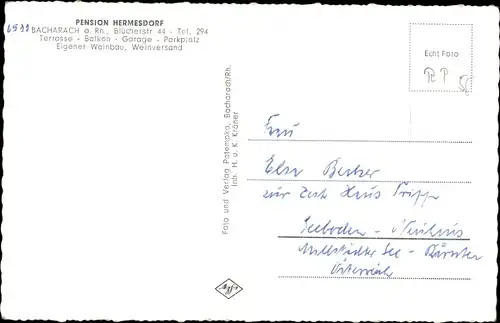 PENSION HERMESDORF
6533 BACHARACH a. Rh., Blücherstr. 44 - Tel. 294
Terrasse - Balkon - Garage - Parkplatz
Eigener Weinbau, Weinversand
Echt Foto
Foto und Verlag Patempka, Bacharach/Rh.
Inh. H. u. K. Kräner
Frau
Elsa Becker
zur Zeit Haus Tripp
Seeboden -
Millstädter See - Kärnten
Österreich
Agfa